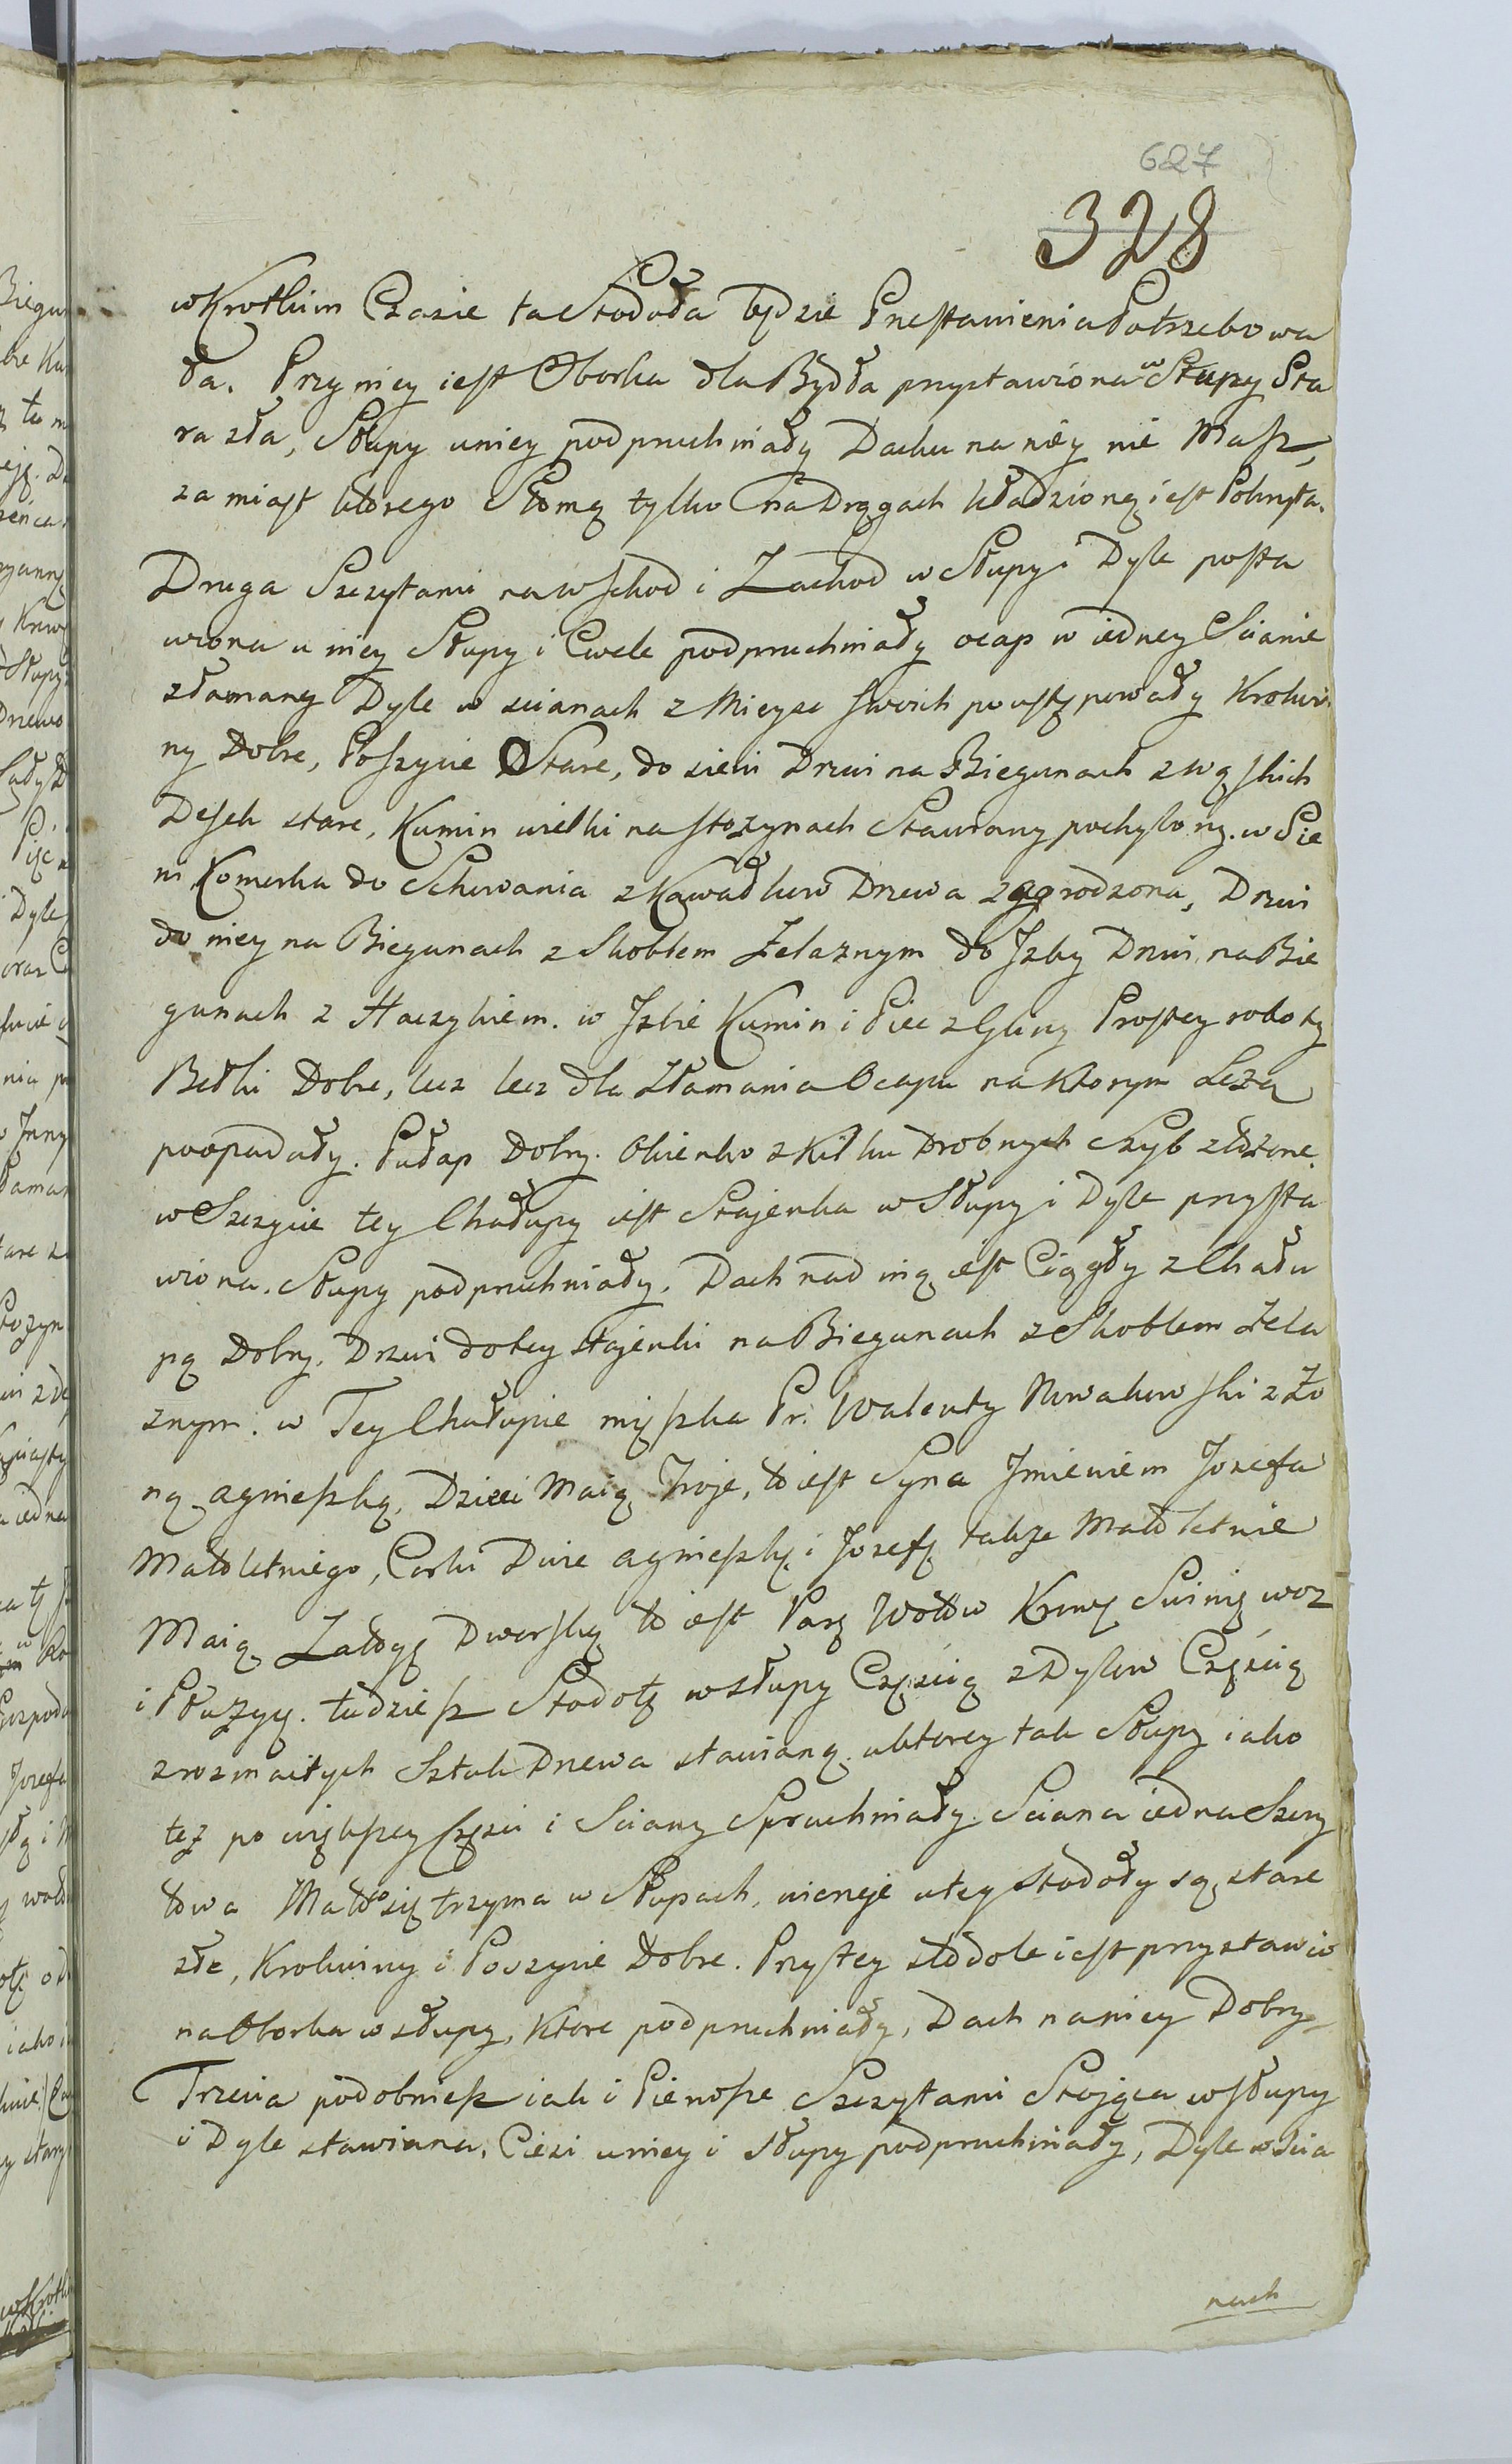 627
328
wKrotkim Czasie ta Stodoła będzie Prestawienia Potrzebowa
ła. Przy niey iest Oborka dla Bydła przystawiona w Słupy Sta
ra zła, Słupy uniey podpruchniały Dachu na niey nie Masz,
za miast ktorego Słomą tylko na Drągach kładzioną iest Pokryta.
Druga Szczytami na wschod i Zachod w Słupy i Dyle posta
wiona u niey Słupy i Cwele podpruchniały ocap w iedney Scianie
złamany Dyle w scianach z Mieysc swoich poustępowały Krokwi
ny Dobre, Poszycie Stare, do sieni Drzwi na Biegunach z wąskich
Desek stare, Kumin wielki na stozynach Stawiany pochylony. w Sie
ni Komorka do Schowania z Kawałkow Drzewa zgrodzona, Drzwi
do niey na Biegunach z Skoblem Zelaznym do Jzby Drzwi na Bie
gunach z Haczykiem. w Jzbie Kumin i Piec z Gliny Prostey roboty
Belki Dobre, lecz lecz dla Złamania Ocapu na ktorym Lezą
poopadały. Pułap Dobry. Okienko z kilku Drobnych Szyb złożone.
w Szczycie tey Chałupy iest Stajenka w Słupy i Dyle przysta
wiona. Słupy podpruchniały. Dach nad nią iest Ciągły z Chału
pą Dobry. Drzwi do tey stajenki na Biegunach z Skoblem Zela
znym. w Tey Chałupie mięszka Pr. Walenty Nowakowski z Zo
ną agnieszką, Dzieci Maią Troje, to iest Syna Jmieniem Jozefa
Małoletniego, Corki Dwie agnieszkę i Jozefę takze Małoletnie
Maią Załogę Dworską to iest Parę Wołow Krowę Swinię woz
i Płużycę. tudziesz Stodołę w słupy Częscią z Dylow Częścią
z rozmaitych Sztuk Drzewa stawianą. uktorey tak Słupy iako
też po większey Częsci i Sciany Spruchniały. Sciana iedna Szczy
towa Mało się trzyma w Słupach, wieneje utey stodoły są stare
złe, Krokwiny i Poszycie Dobre. Przy tey stodole iest przystawio
na Oborka w słupy, ktore podpruchniały, Dach naniey Dobry
Trzecia podobniesz iak i Pierwsze Szczytami Stojąca w słupy
i Dyle stawiana. Ciezi uniey i słupy podpruchniały, Dyle w scia
nach